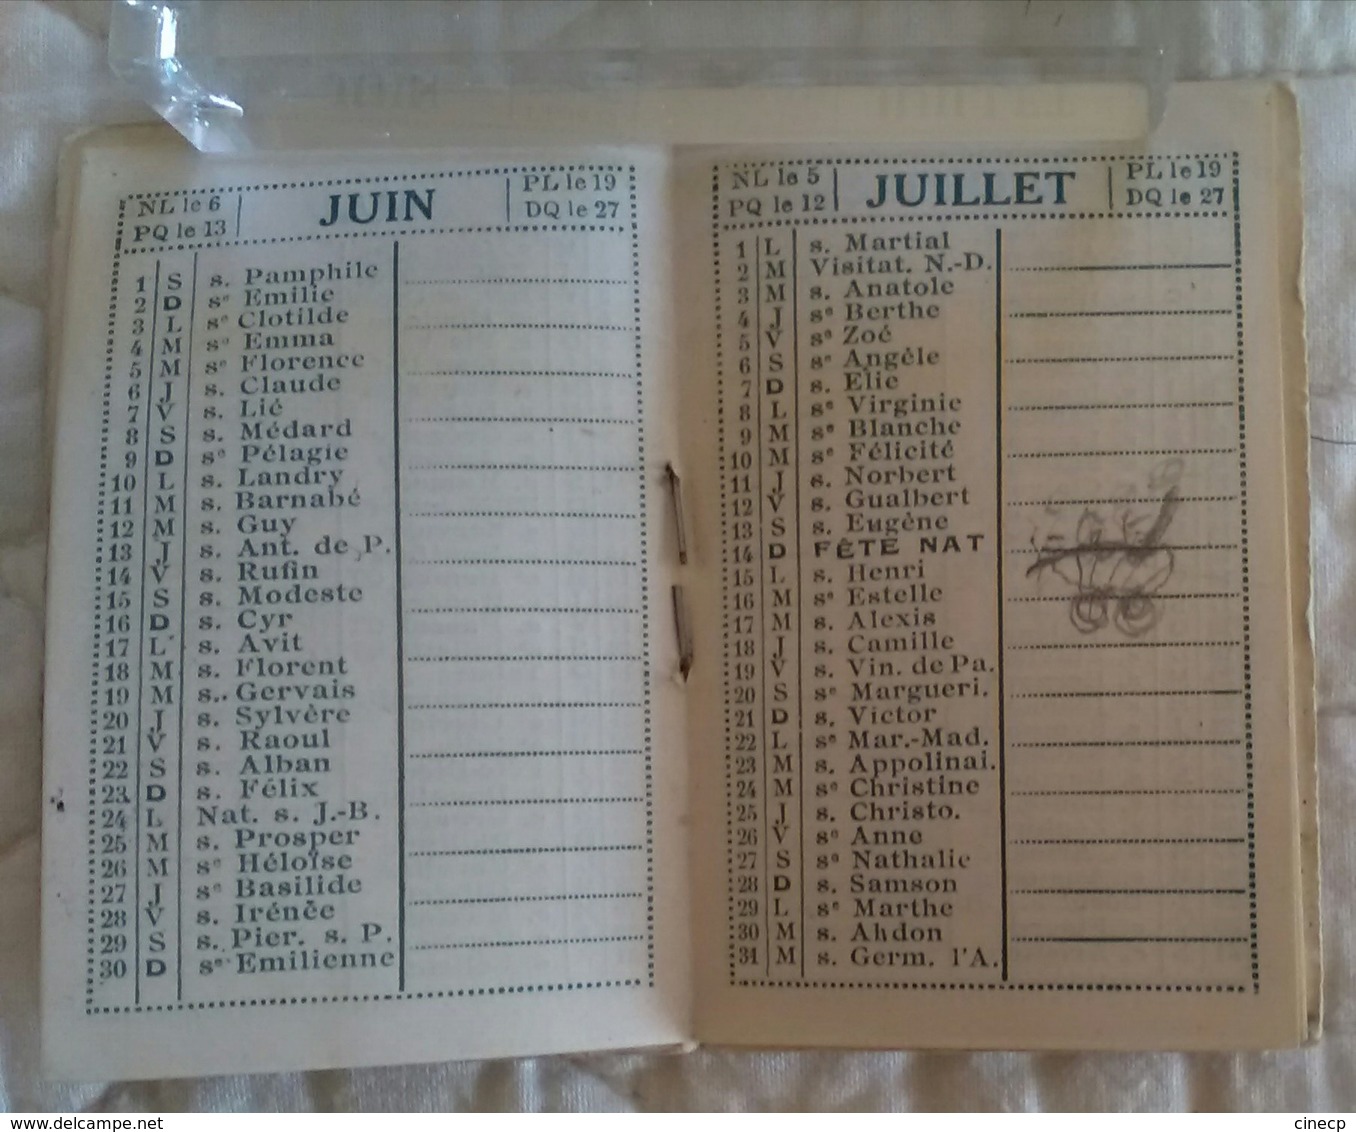 NL le 6
PQ le 13
JUIN
PL le 19
DQ le 27
1 S s. Pamphile
2 D sᵉ Emilie
3 L sᵉ Clotilde
4 M sᵉ Emma
5 M sᵉ Florence
6 J s. Claude
7 V s. Lié
8 S s. Médard
9 D sᵉ Pélagie
10 L s. Landry
11 M s. Barnabé
12 M s. Guy
13 J s. Ant. de P.
14 V s. Rufin
15 S s. Modeste
16 D s. Cyr
17 L s. Avit
18 M s. Florent
19 M s. Gervais
20 J s. Sylvère
21 V s. Raoul
22 S s. Alban
23 D s. Félix
24 L Nat. s. J.-B.
25 M s. Prosper
26 M sᵉ Héloïse
27 J sᵉ Basilide
28 V s. Irénée
29 S s. Pier. s. P.
30 D sᵉ Emilienne
NL le 5
PQ le 12
JUILLET
PL le 19
DQ le 27
1 L s. Martial
2 M Visitat. N.-D.
3 M s. Anatole
4 J sᵉ Berthe
5 V sᵉ Zoé
6 S sᵉ Angèle
7 D s. Elie
8 L sᵉ Virginie
9 M sᵉ Blanche
10 M sᵉ Félicité
11 J s. Norbert
12 V s. Gualbert
13 S s. Eugène
14 D FÊTE NAT
15 L s. Henri
16 M sᵉ Estelle
17 M s. Alexis
18 J s. Camille
19 V s. Vin. de Pa.
20 S sᵉ Margueri.
21 D s. Victor
22 L sᵉ Mar.-Mad.
23 M s. Appolinai.
24 M sᵉ Christine
25 J s. Christo.
26 V sᵉ Anne
27 S sᵉ Nathalie
28 D s. Samson
29 L sᵉ Marthe
30 M s. Ahdon
31 M s. Germ. l'A.
www.delcampe.net
cinecp